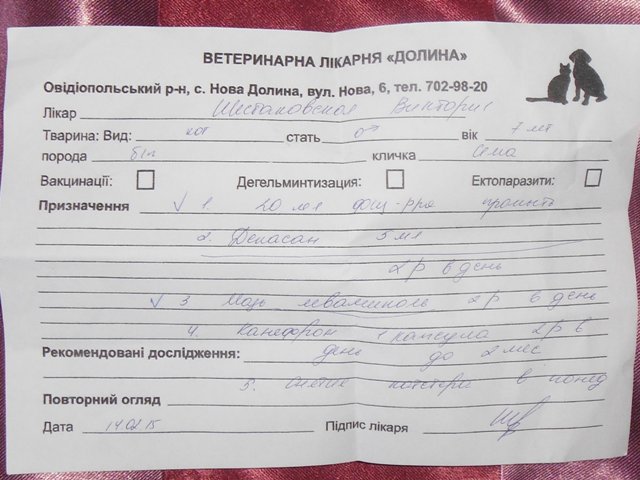 ВЕТЕРИНАРНА ЛІКАРНЯ «ДОЛИНА»
Овідіопольський р-н, с. Нова Долина, вул. Нова, 6, тел. 702-98-20
Лікар Шестаковская Виктория
Тварина: Вид: кот стать ♂ вік 7 лет
порода б/п кличка Сема
Вакцинації: Дегельмінтизация: Ектопаразити:
Призначення √ 1. 20 мл физ-рра
2. Декасан 5 мл
2 р в день
√ 3 Мазь левамиколь 2 р в день
4. Канефрон 1 капсула 2 р в
Рекомендовані дослідження: день до 2 мес
в понед
Повторний огляд
Дата 14.02.15 Підпис лікаря